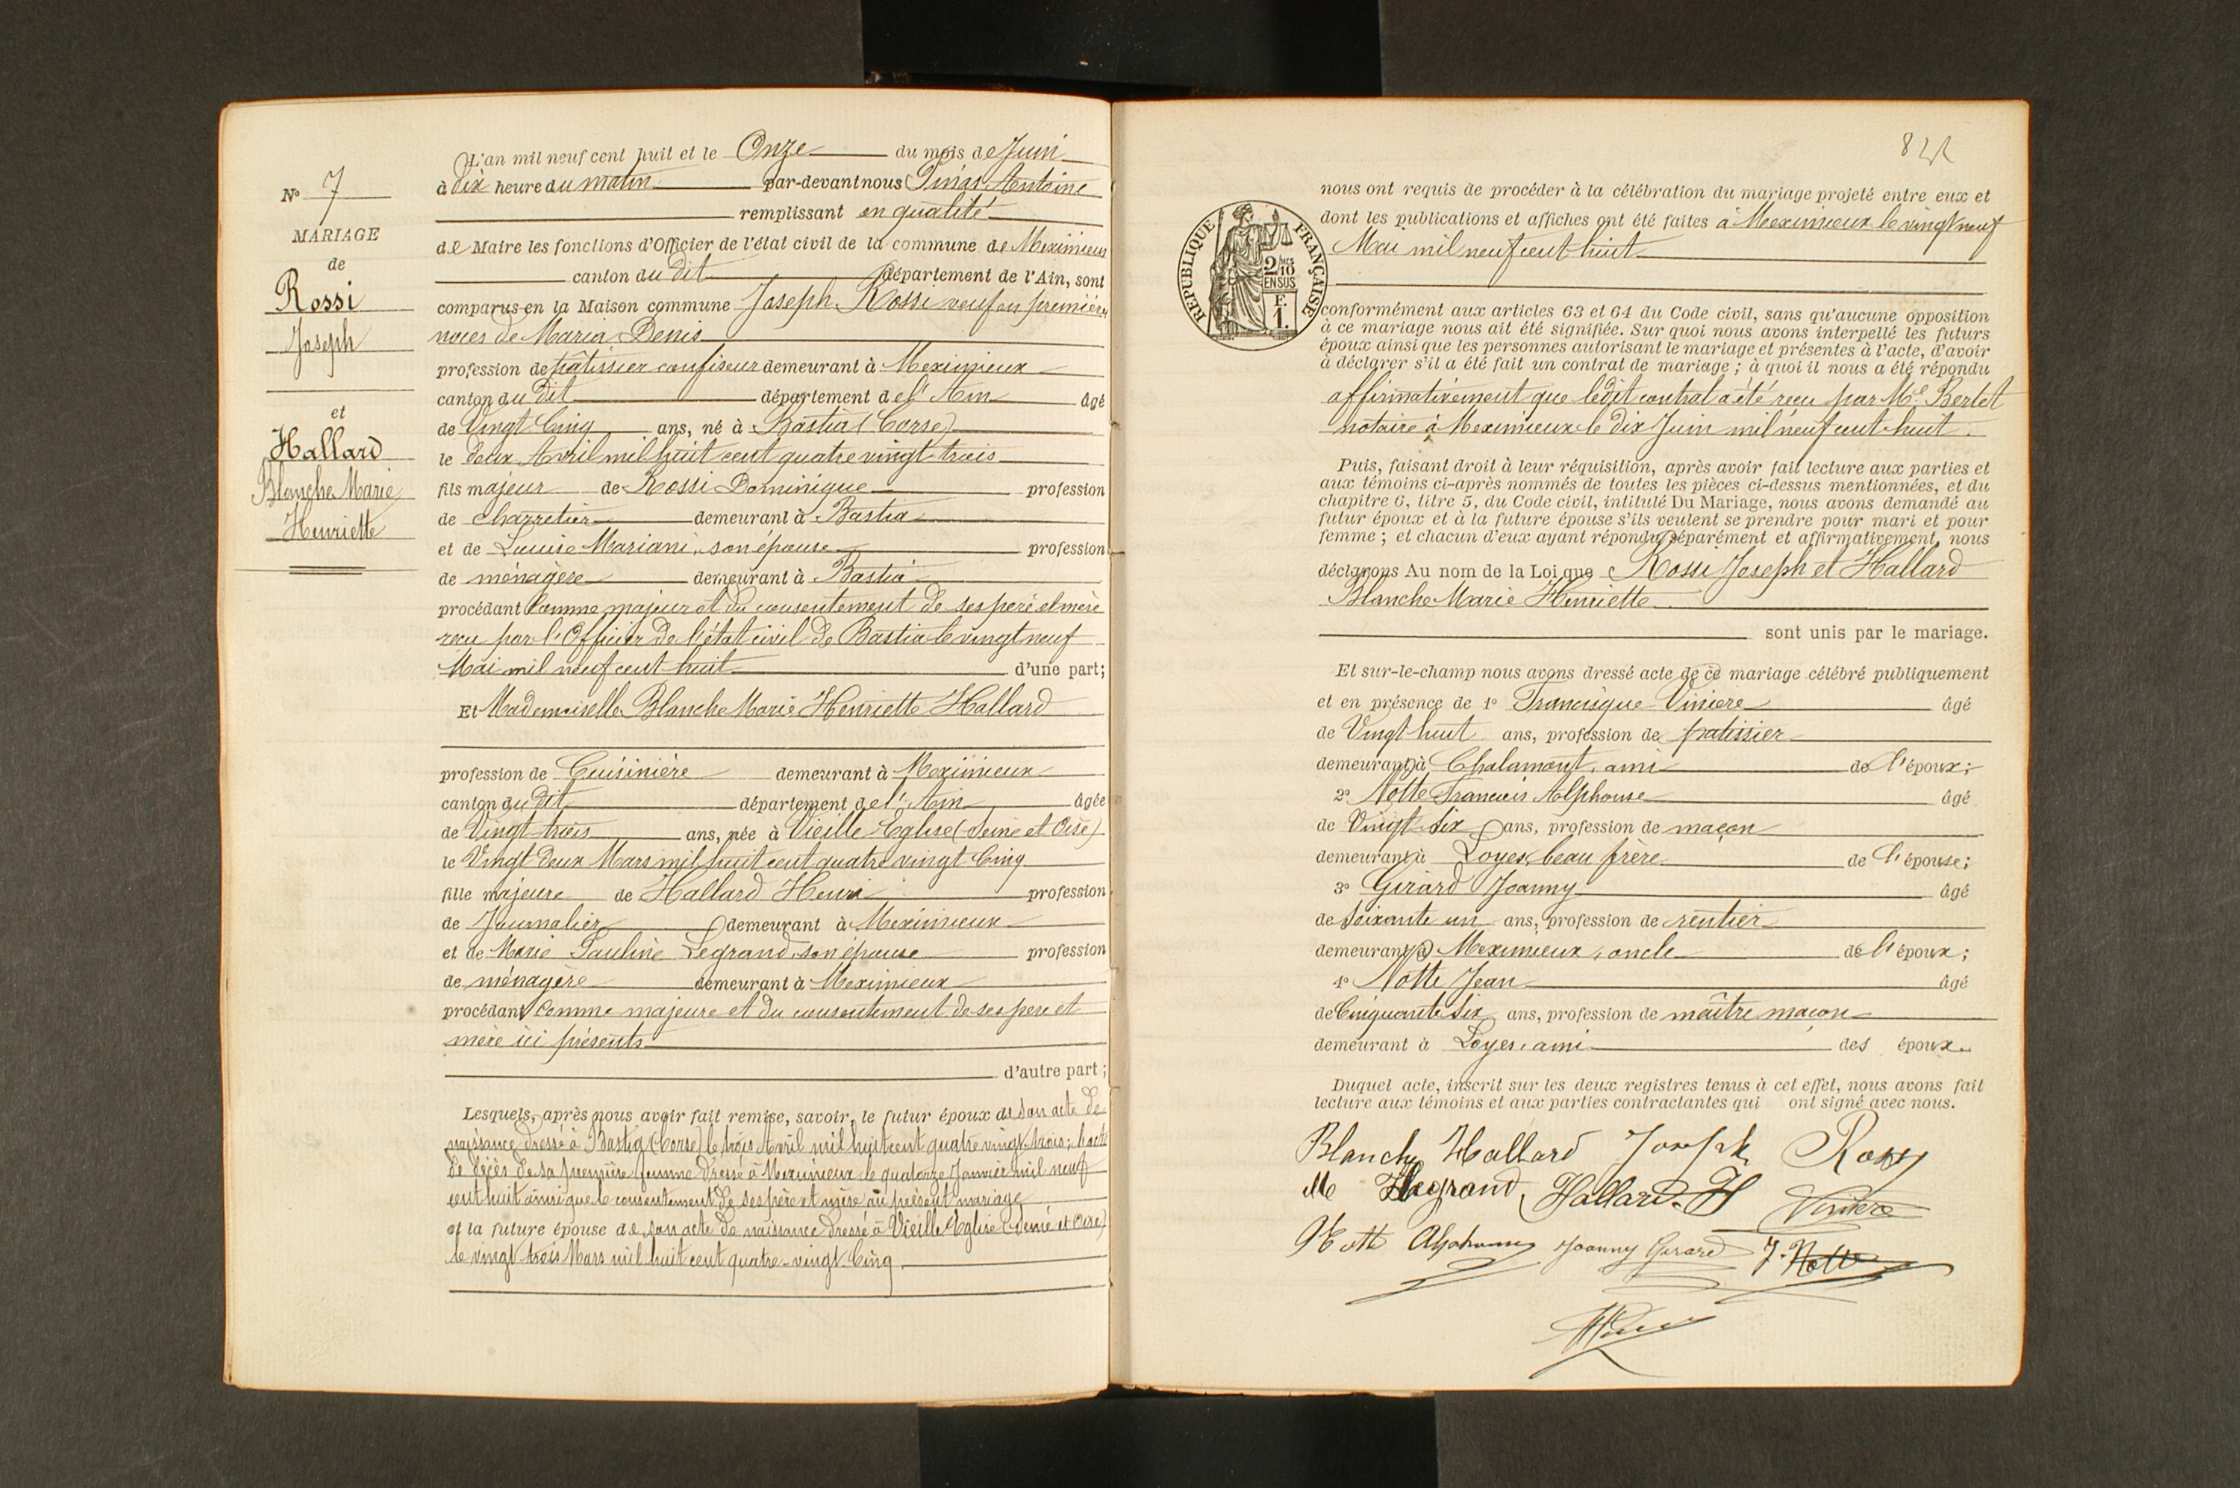 N° 7
MARIAGE
de
Rossi
Joseph
et
Hallard
Blanche Marie
Henriette
L'an mil neuf cent huit et le Onze du mois de Juin
à dix heure du matin par-devant nous Antoine
remplissant en qualité
de Maire les fonctions d'Officier de l'état civil de la commune de Meximieux
canton du dit département de l'Ain, sont
comparus en la Maison commune Joseph Rossi veuf en premières
noces de Maria Denis
profession de pâtissier confiseur demeurant à Meximieux
canton du dit département de l'Ain âgé
de Vingt Cinq ans, né à Bastia (Corse)
le deux Avril mil huit cent quatre vingt trois
fils majeur de Rossi Dominique profession
de charretier demeurant à Bastia
et de Louise Mariani, son épouse profession
de ménagère demeurant à Bastia
procédant comme majeur et du consentement de ses père et mère
reçu par l'Officier de l'état civil de Bastia le vingt neuf
Mai mil neuf cent huit d'une part;
Et Mademoiselle Blanche Marie Henriette Hallard
profession de Cuisinière demeurant à Meximieux
canton du dit département de l'Ain âgée
de Vingt trois ans, née à Vieille Eglise (Seine et Oise)
le Vingt deux Mars mil huit cent quatre vingt Cinq
fille majeure de Hallard Henri profession
de Journalier demeurant à Meximieux
et de Marie Pauline Legrand, son épouse profession
de ménagère demeurant à Meximieux
procédant comme majeure et du consentement de ses pere et
mère ici présents
d'autre part;
Lesquels, après nous avoir fait remise, savoir, le futur époux de son acte de
naissance dressé à Bastia (Corse) le trois Avril mil huit cent quatre vingt trois; l'acte
de décès de sa première femme dressé à Meximieux le quatorze Janvier mil neuf
cent huit ainsi que le consentement de ses père et mère au présent mariage
et la future épouse de son acte de naissance dressé à Vieille Eglise (Seine et Oise)
le vingt trois Mars mil huit cent quatre-vingt Cinq
82
REPUBLIQUE FRANÇAISE
2/10 EN SUS
F. 1.
nous ont requis de procéder à la célébration du mariage projeté entre eux et
dont les publications et affiches ont été faites à Meximieux le vingt neuf
Mai mil neuf cent huit
conformément aux articles 63 et 64 du Code civil, sans qu'aucune opposition
à ce mariage nous ait été signifiée. Sur quoi nous avons interpellé les futurs
époux ainsi que les personnes autorisant le mariage et présentes à l'acte, d'avoir
à déclarer s'il a été fait un contrat de mariage; à quoi il nous a été répondu
affirmativement que ledit contrat a été reçu par Me Bertet
notaire à Meximieux le dix Juin mil neuf cent huit.
Puis, faisant droit à leur réquisition, après avoir fait lecture aux parties et
aux témoins ci-après nommés de toutes les pièces ci-dessus mentionnées, et du
chapitre 6, titre 5, du Code civil, intitulé Du Mariage, nous avons demandé au
futur époux et à la future épouse s'ils veulent se prendre pour mari et pour
femme; et chacun d'eux ayant répondu séparément et affirmativement, nous
déclarons Au nom de la Loi que Rossi Joseph et Hallard
Blanche Marie Henriette
sont unis par le mariage.
Et sur-le-champ nous avons dressé acte de ce mariage célébré publiquement
et en présence de 1° Francisque Viniere âgé
de Vingt huit ans, profession de patissier
demeurant à Chalamont, ami de l'époux;
2° Notte François Alphonse âgé
de Vingt Six ans, profession de maçon
demeurant à Loyes, beau frère de l'épouse;
3° Girard Joanny âgé
de Soixante un ans, profession de rentier
demeurant à Meximieux, oncle de l'époux;
4° Notte Jean âgé
de Cinquante Six ans, profession de maître maçon
demeurant à Loyes, ami des époux.
Duquel acte, inscrit sur les deux registres tenus à cet effet, nous avons fait
lecture aux témoins et aux parties contractantes qui ont signé avec nous.
Blanche Hallard Joseph Rossi
Me Legrand Hallard H Viniere
Notte Alphonse Joanny Girard J. Notte